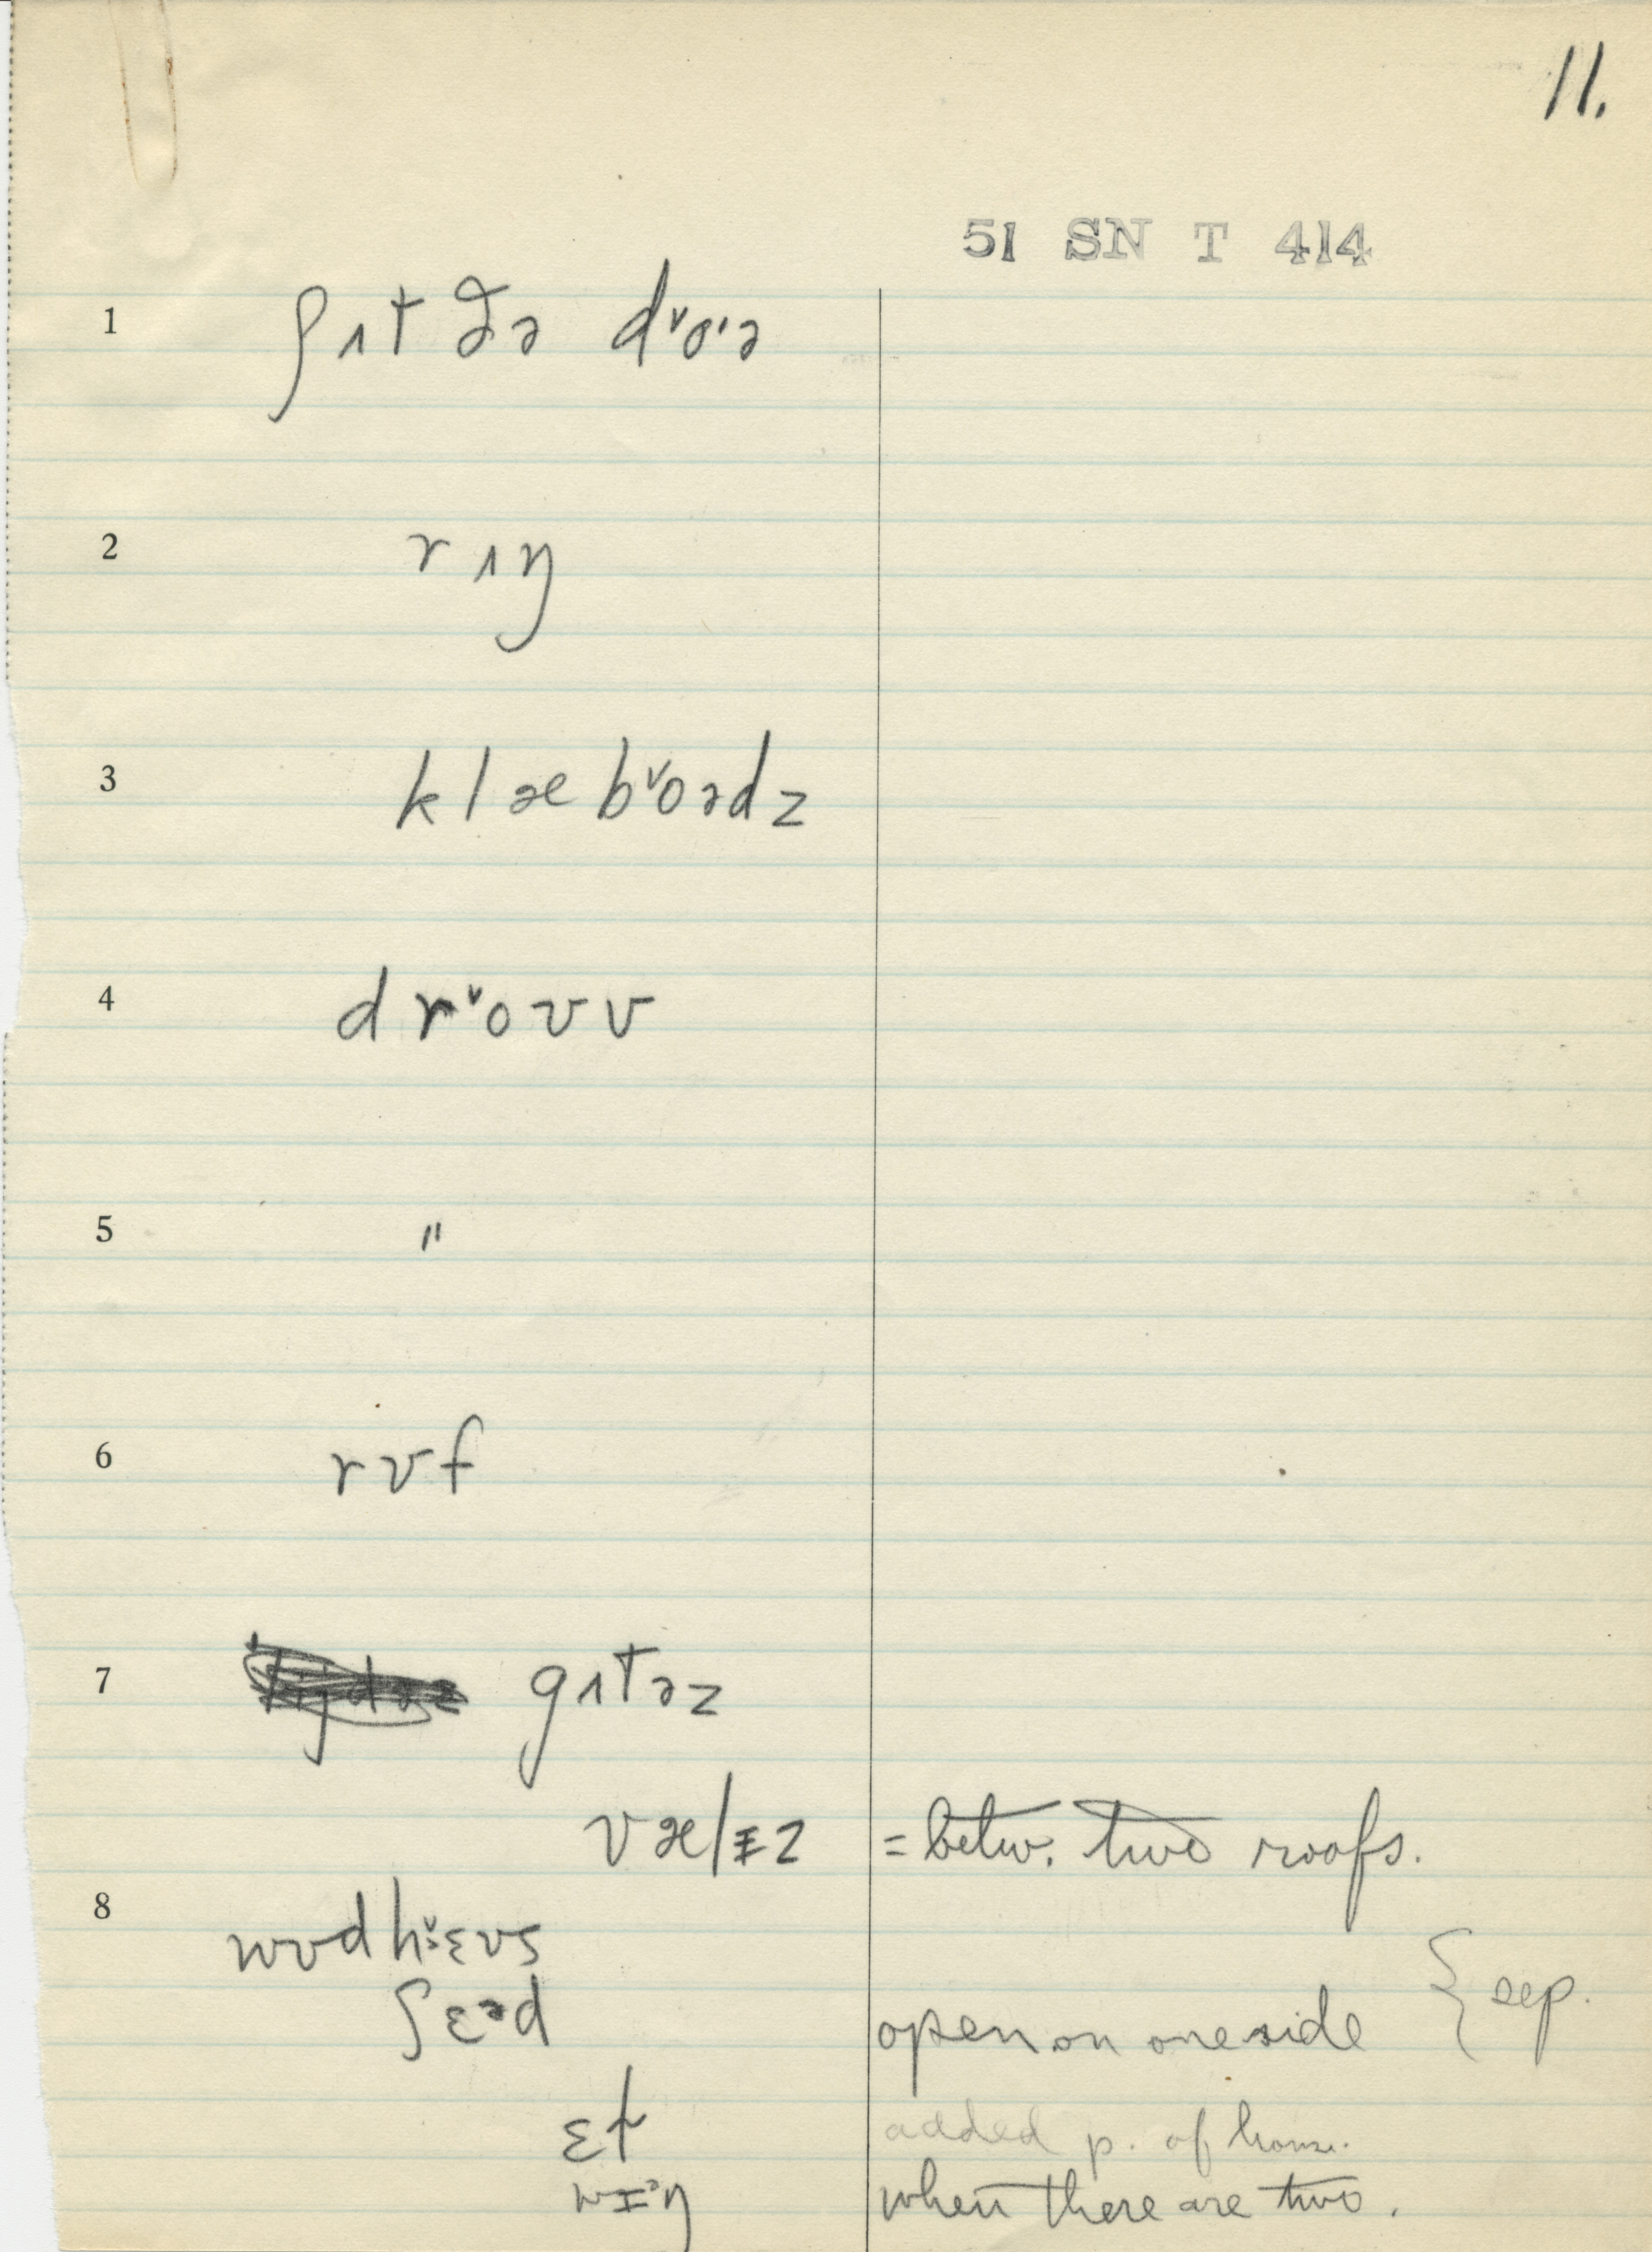 11.
51 SN T 414
1 ʃʌt ðə dˇoˑə
2 rʌŋ
3 klæ bˇoədz
4 drˇoʊʊ
5 〃
6 rʊf
7 gʌtəz
vælɪz = betw. two roofs.
8
wʊdhˇɛʊs
ʃɛəd open on one side { sep.
ɛł added p. of house.
wɪᵊŋ when there are two.